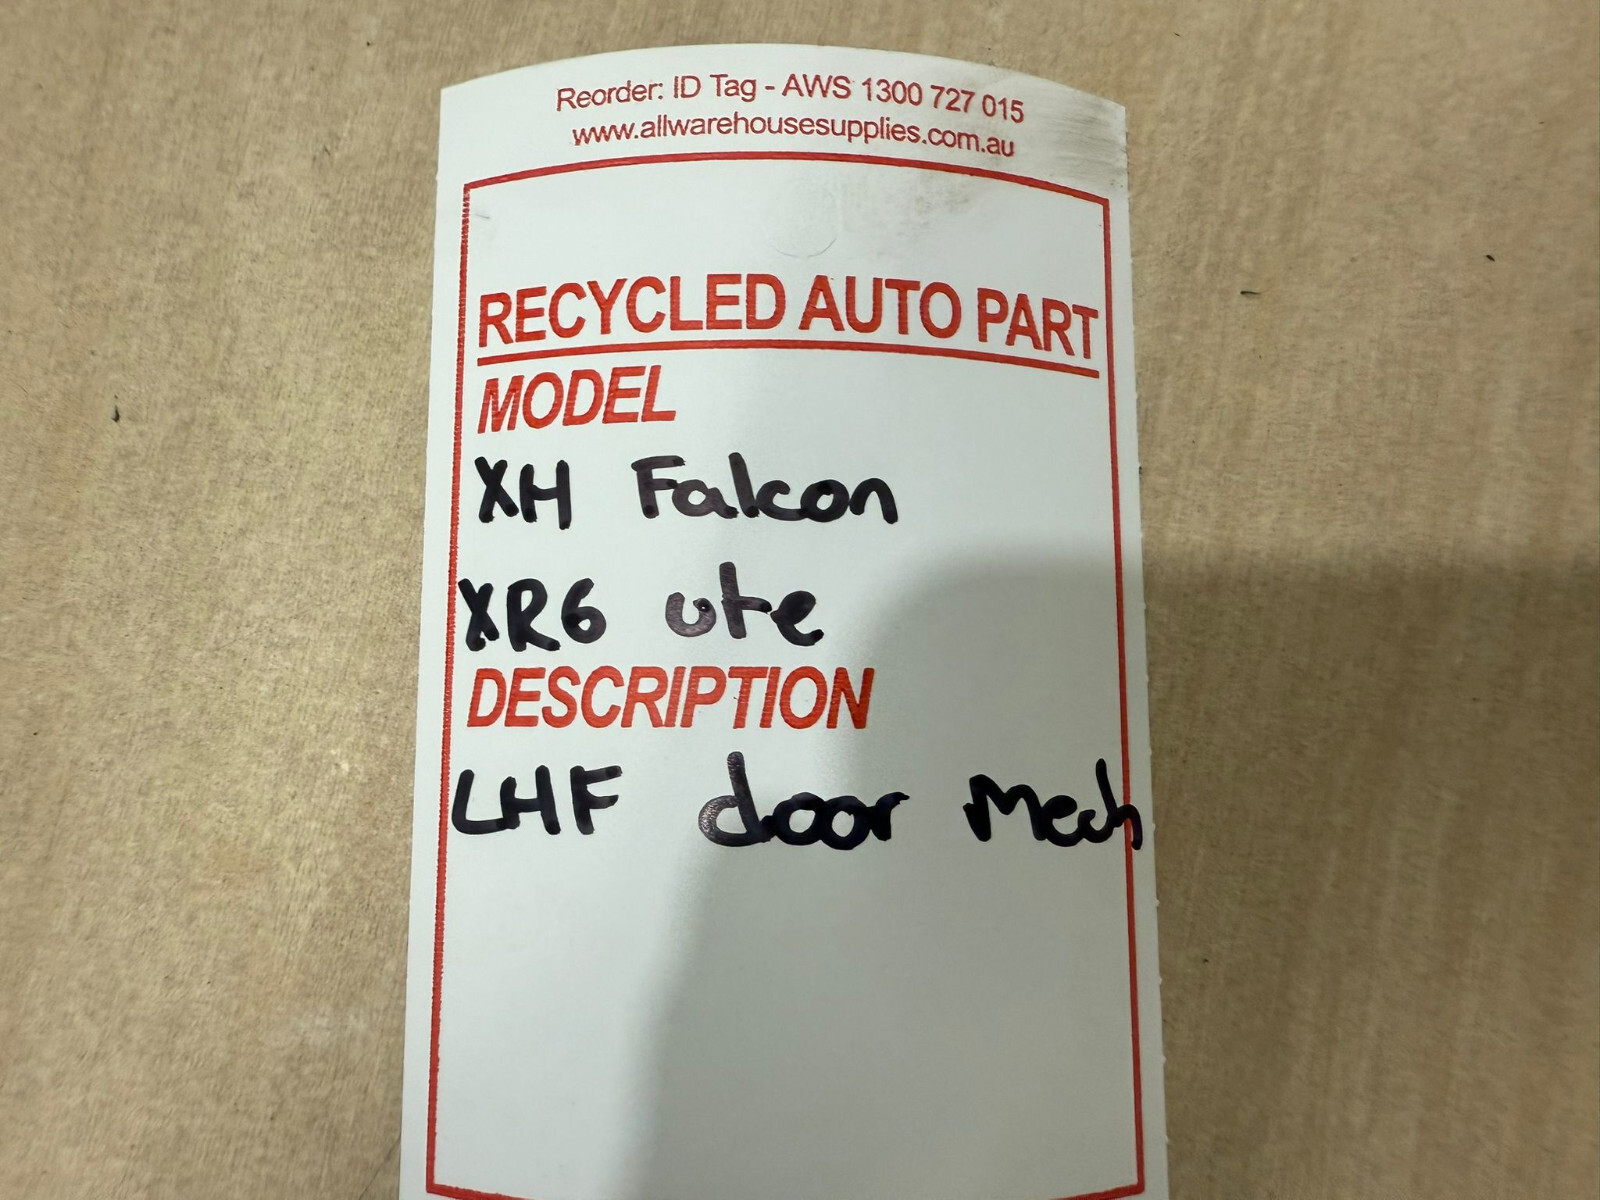 Reorder: ID Tag - AWS 1300 727 015
www.allwarehousesupplies.com.au
RECYCLED AUTO PART
MODEL
XH Falcon
XR6 ute
DESCRIPTION
LHF door Mech